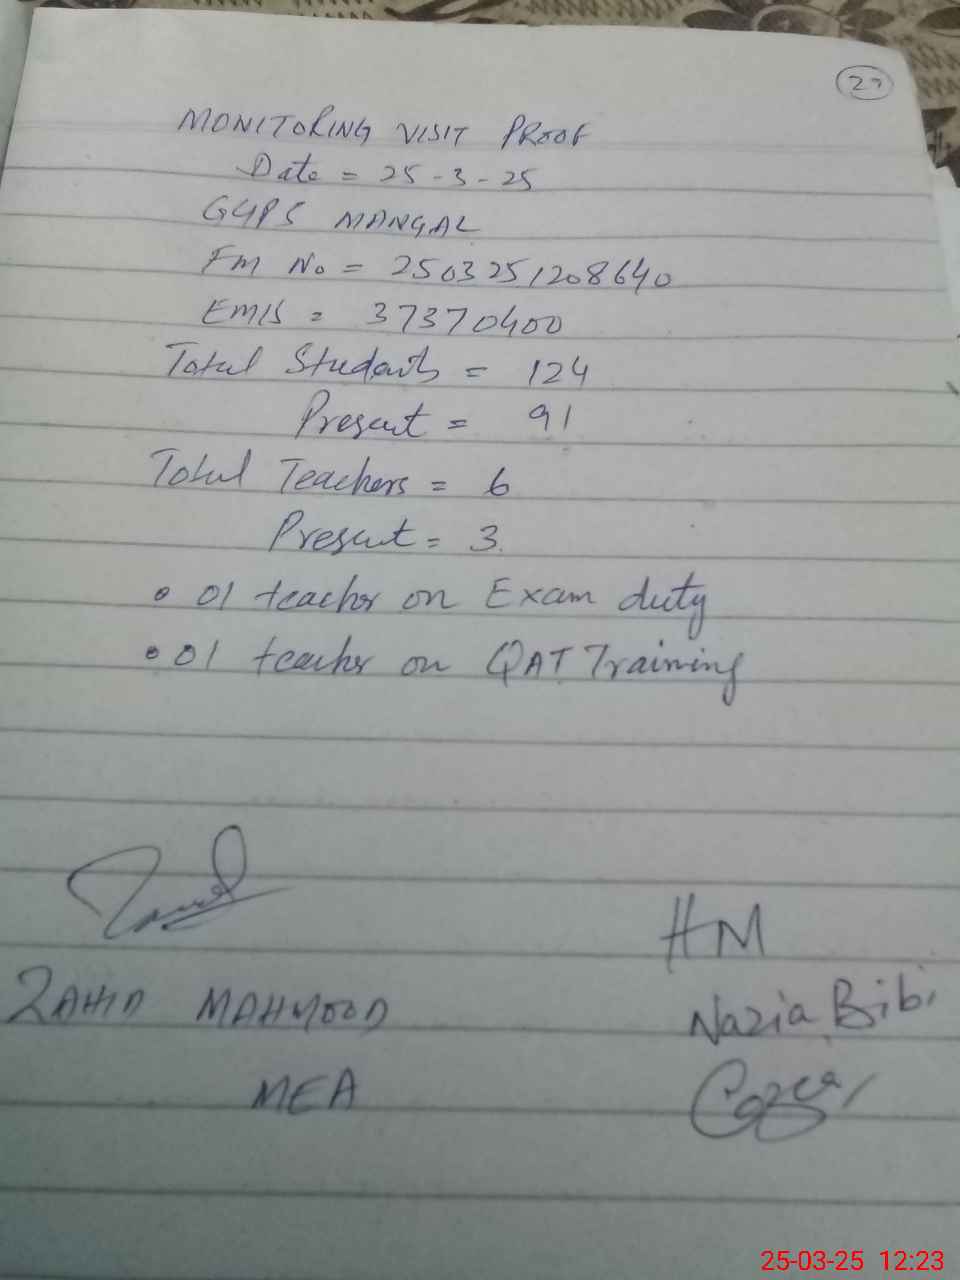 27
MONITORING VISIT PROOF
Date = 25-3-25
GGPS MANGAL
FM No = 2503251208640
EMIS = 37370400
Total Students = 124
Present = 91
Total Teachers = 6
Present = 3
• 01 teacher on Exam duty
• 01 teacher on QAT Training
HM
ZAHID MAHMOOD
Nazia Bibi
MEA
25-03-25 12:23